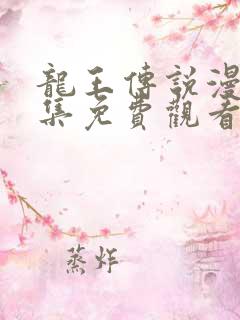 龍王傳說漫
集免費觀看
蒸炸